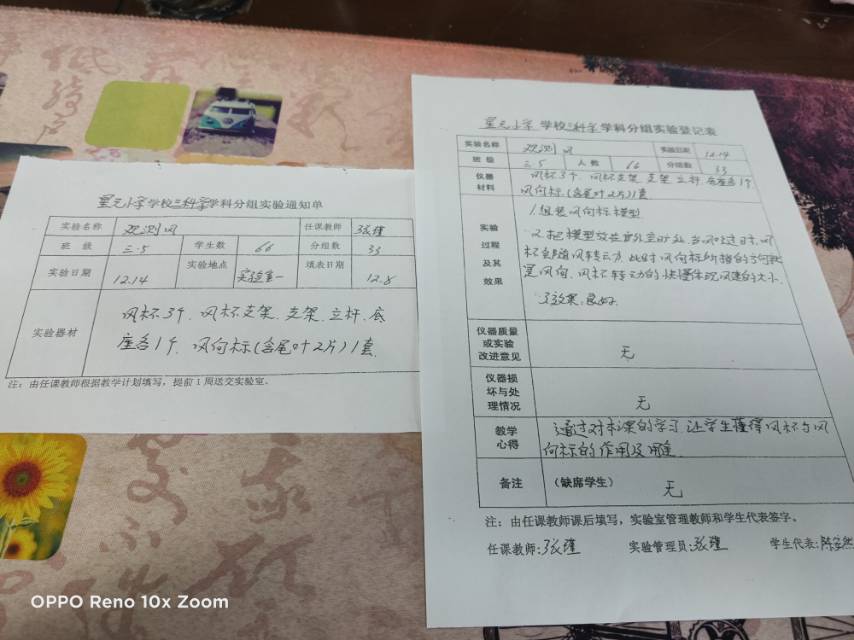 星元小学学校三科学学科分组实验通知单
实验名称 观测风 任课教师 张瑾
班 级 三.5 学生数 66 分组数 33
实验日期 12.14 实验地点 实验室一 填表日期 12.8
实验器材 风杯3个、风杯支架、支架、立杆、底
座各1个、风向标(含尾叶2片)1套
注：由任课教师根据教学计划填写，提前1周送交实验室。
星元小学学校三科学学科分组实验登记表
实验名称 观测风 实验日期 12.14
班 级 三.5 人 数 66 分组数 33
仪器材料 风杯3个、风杯支架、支架、立杆、底座各1个
风向标(含尾叶2片)1套
实验过程及其效果
1.组装风向标模型
2.把模型放在室外空旷处,当风吹过时,风
杯会随风转动,此时风向标所指的方向就
是风向,风杯转动的快慢体现风速的大小.
3.效果:良好.
仪器质量或实验改进意见 无
仪器损坏与处理情况 无
教学心得 通过对本课的学习,让学生懂得风杯与风
向标的作用及用途
备注 (缺席学生) 无
注：由任课教师课后填写，实验室管理教师和学生代表签字。
任课教师:张瑾 实验管理员:张瑾 学生代表:陈
OPPO Reno 10x Zoom